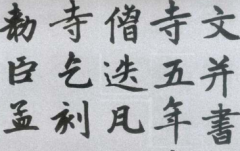 文并書
寺五年
僧迭凡
寺乞刻
勑臣孟